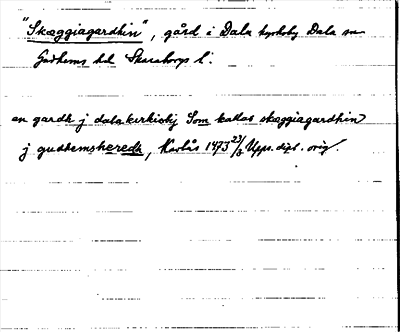 "Skæggiagardhin", gård i Dala kyrkoby Dala sn
Gudhems hd Skaraborgs l.
en gardh j dala kirkioby Som kallas skæggiagardhin
j gudhemsheredh, Karlås 1473 23/3 Upps. dipl. orig.